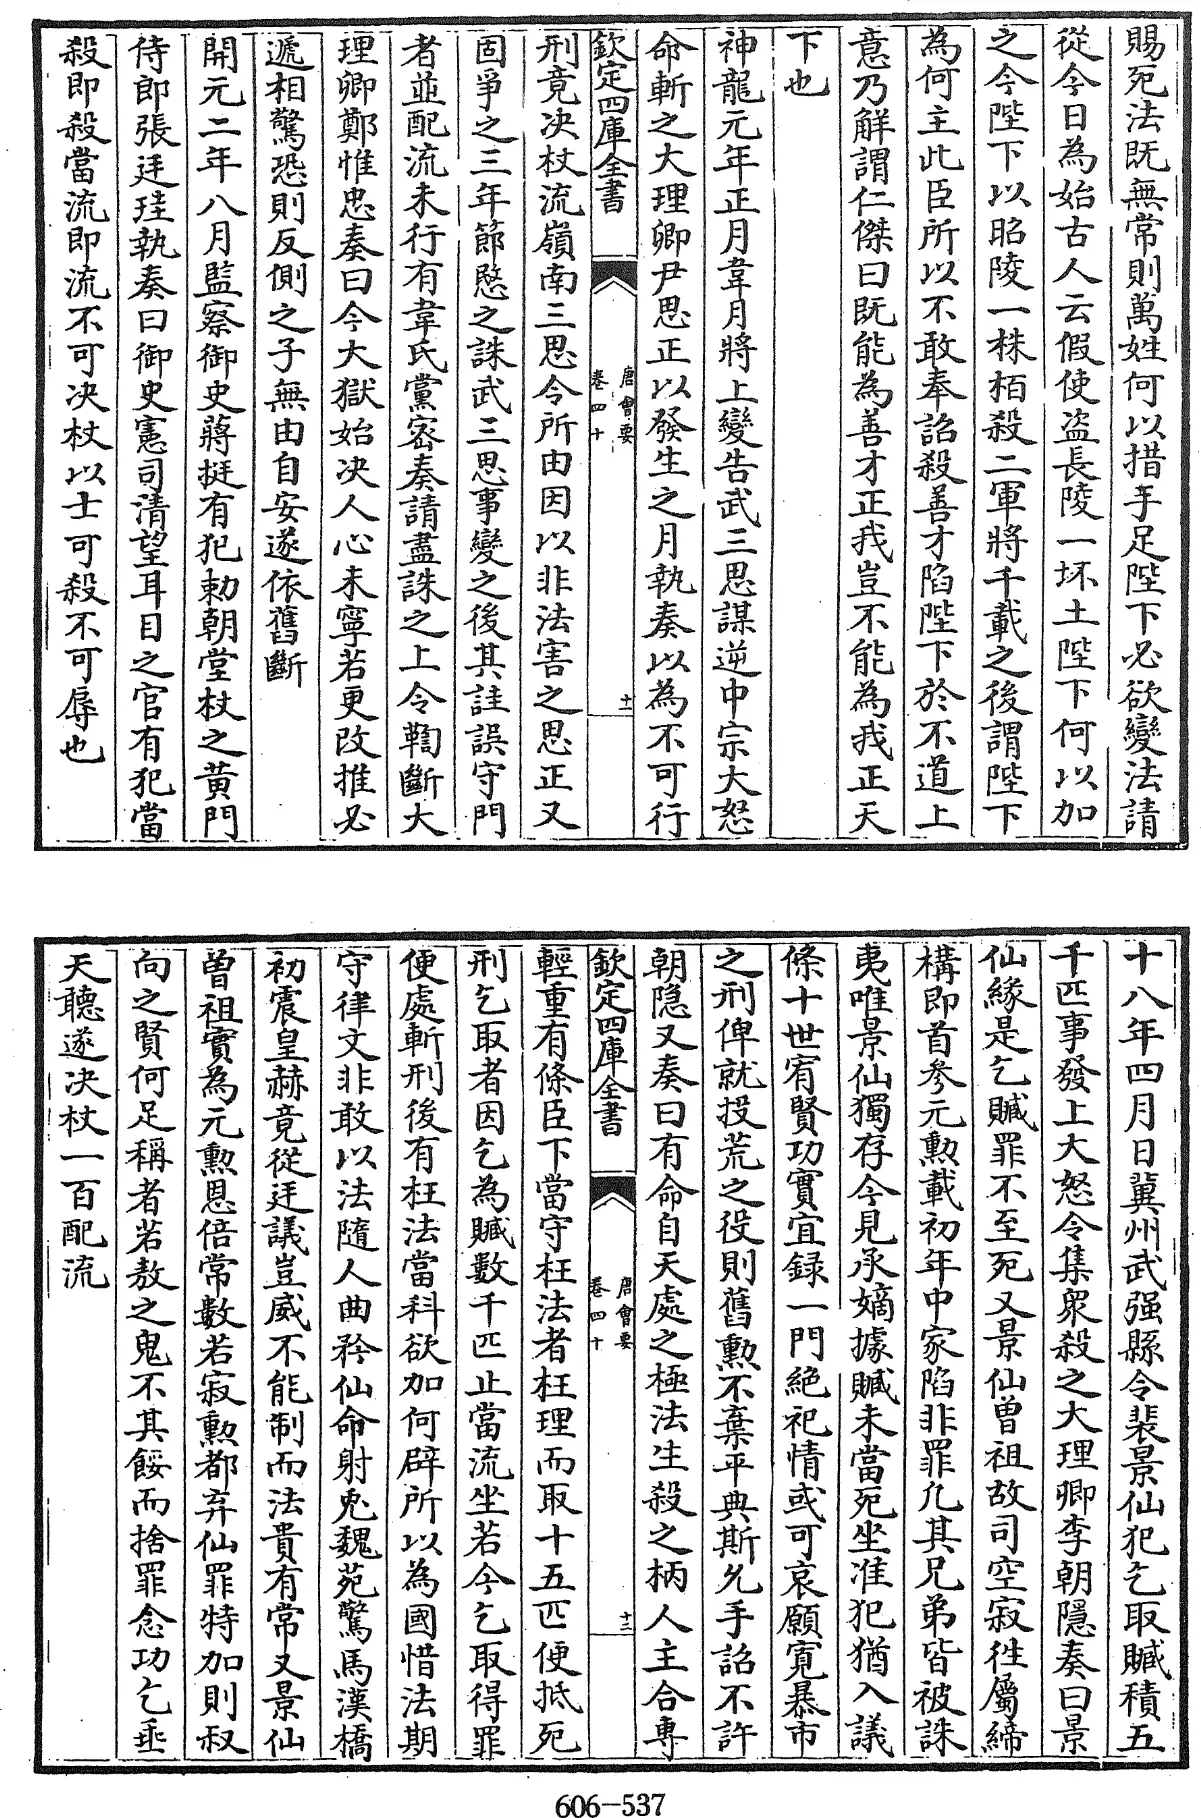 賜死法既無常則萬姓何以措手足陛下必欲變法請
從今日為始古人云假使盗長陵一抔土陛下何以加
之今陛下以昭陵一株栢殺二軍將千載之後謂陛下
為何主此臣所以不敢奉詔殺善才陷陛下於不道上
意乃解謂仁傑曰既能為善才正我豈不能為我正天
下也
神龍元年正月韋月將上變告武三思謀逆中宗大怒
命斬之大理卿尹思正以發生之月執奏以為不可行
欽定四庫全書
唐會要
卷四十
十二
刑竟决杖流嶺南三思令所由因以非法害之思正又
固爭之三年節愍之誅武三思事變之後其詿誤守門
者並配流未行有韋氏黨宻奏請盡誅之上令鞫斷大
理卿鄭惟忠奏曰今大獄始决人心未寧若更改推必
遞相驚恐則反側之子無由自安遂依舊斷
開元二年八月監察御史蔣挺有犯勅朝堂杖之黄門
侍郎張廷珪執奏曰御史憲司清望耳目之官有犯當
殺即殺當流即流不可决杖以士可殺不可辱也
十八年四月日冀州武强縣令裴景仙犯乞取贓積五
千匹事發上大怒令集衆殺之大理卿李朝隱奏曰景
仙緣是乞贓罪不至死又景仙曾祖故司空寂往屬締
構即首參元勲載初年中家陷非罪凡其兄弟皆被誅
夷唯景仙獨存今見承嫡據贓未當死坐准犯猶入議
條十世宥賢功實宜録一門絶祀情或可哀願寛暴市
之刑俾就投荒之役則舊勲不棄平典斯允手詔不許
朝隐又奏曰有命自天處之極法生殺之柄人主合專
欽定四庫全書
唐會要
卷四十
十三
輕重有條臣下當守枉法者枉理而取十五匹便抵死
刑乞取者因乞為贓數千匹止當流坐若今乞取得罪
便處斬刑後有枉法當科欲加何辟所以為國惜法期
守律文非敢以法隨人曲矜仙命射兎魏苑驚馬漢橋
初震皇赫竟從廷議豈威不能制而法貴有常又景仙
曾祖實為元勲恩倍常數若寂勲都弃仙罪特加則叔
向之賢何足稱者若敖之鬼不其餒而捨罪念功乞垂
天聽遂决杖一百配流
606-537